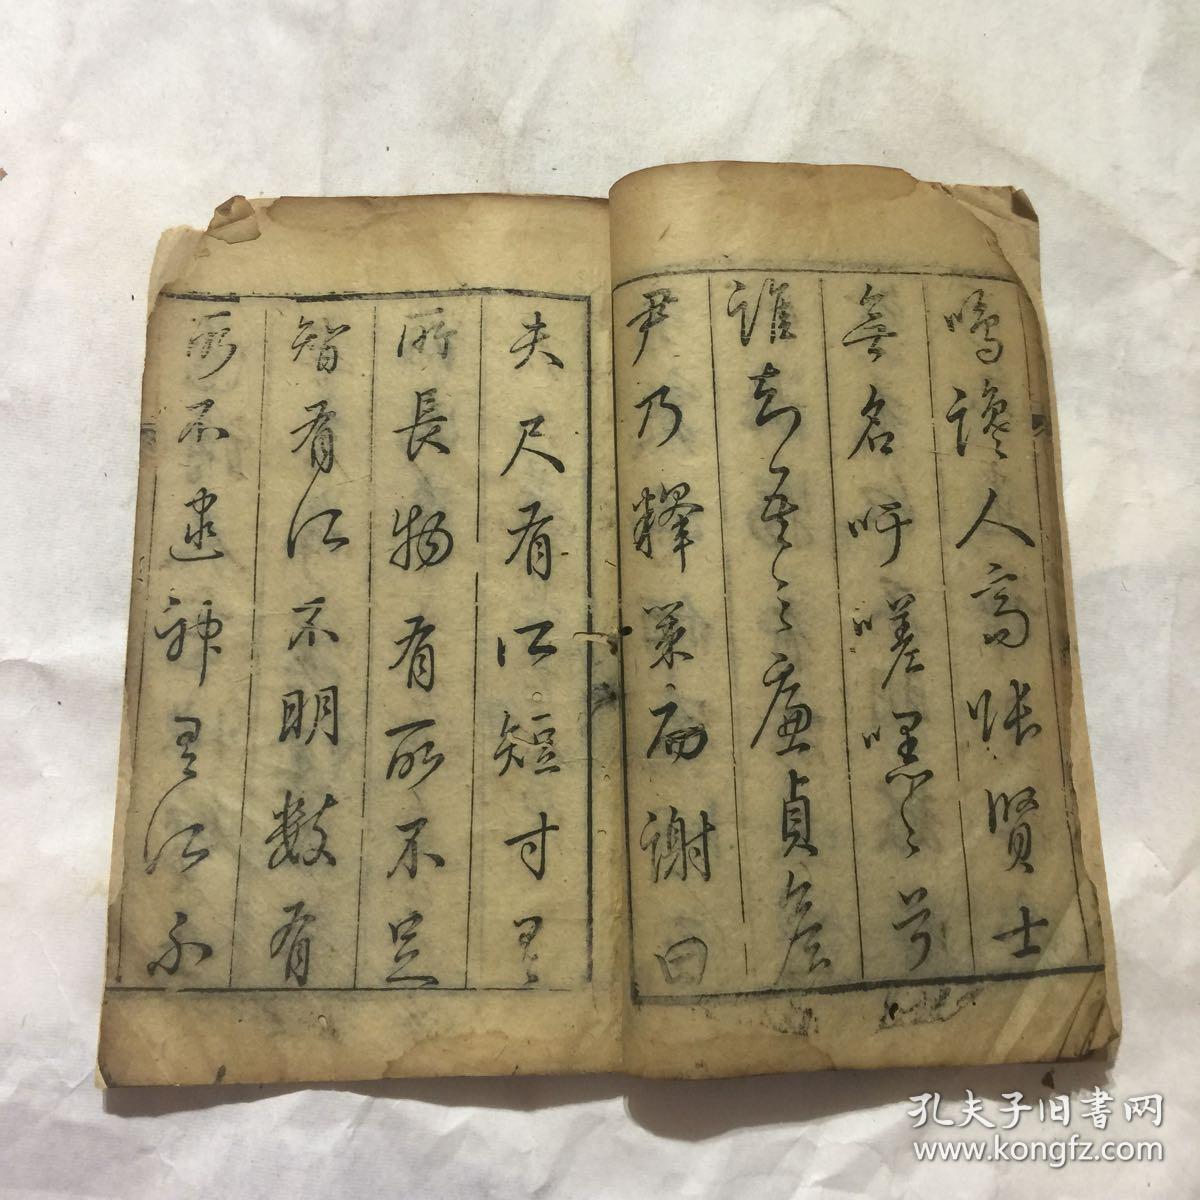 鳴讒人高張賢士
無名吁嗟嘿々兮
誰知吾之廉貞詹
尹乃釋策而謝曰
夫尺有所短寸有
所長物有所不足
智有所不明數有
所不逮神有所不
孔夫子旧書网
www.kongfz.com